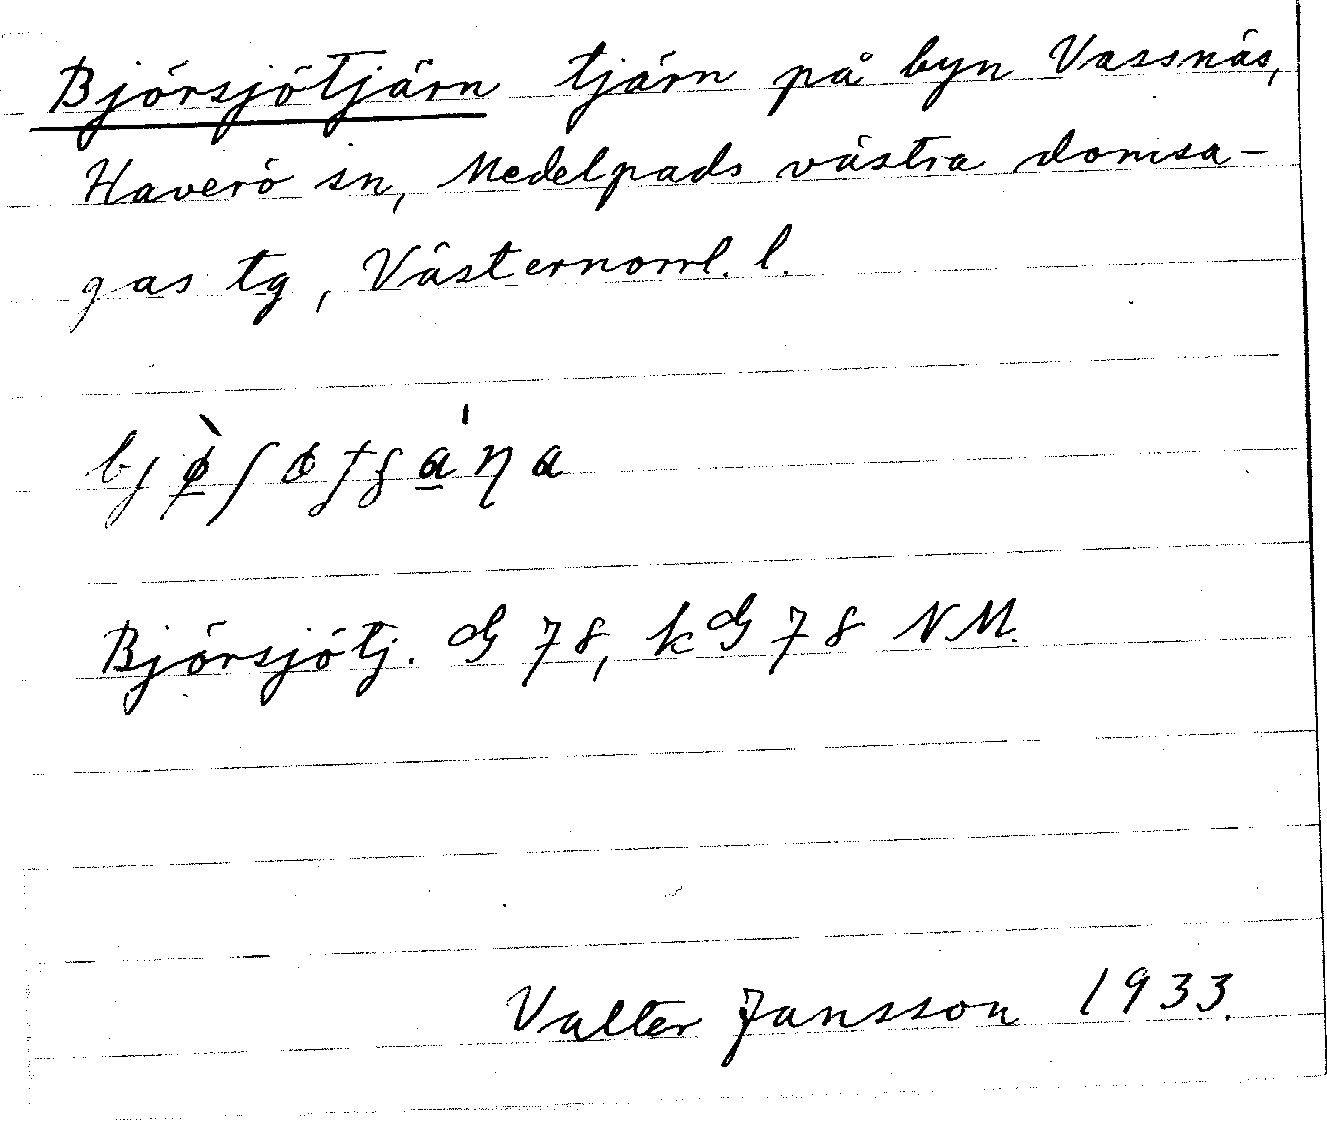 Björsjötjärn tjärn på byn Vassnäs,
Haverö sn, Medelpads västra domsa-
gas tg, Västernorrl. l.
Björsjötj. G 78, kG 78 NM.
Valter Jansson 1933.